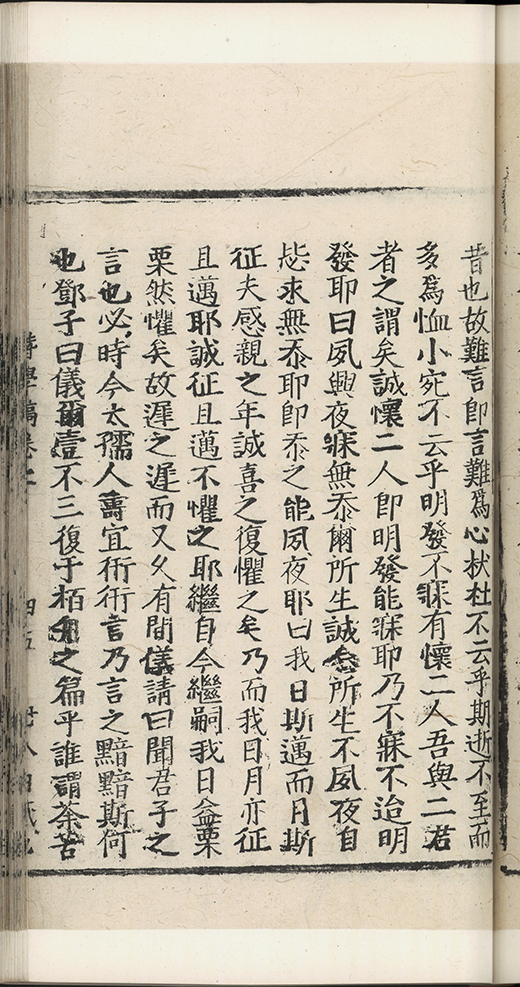 昔也故難言即言難爲心杕杜不云乎期逝不至而
多爲恤小宛不云乎明發不寐有懷二人吾與二君
者之謂矣誠懷二人即明發能寐耶乃不寐不迨明
發耶曰夙興夜寐無忝爾所生誠忝所生不夙夜自
毖求無忝耶即忝之能夙夜耶曰我日斯邁而月斯
征夫感親之年誠喜之復懼之矣乃而我日月亦征
且邁耶誠征且邁不懼之耶繼自今繼嗣我日益栗
栗然懼矣故遲之遲而又久有間儀請曰聞君子之
言也必時今太孺人壽宜術術言乃言之黯黯斯何
也鄧子曰儀爾壹不三復于栢舟之篇乎誰謂荼苦
學稿卷二
四五